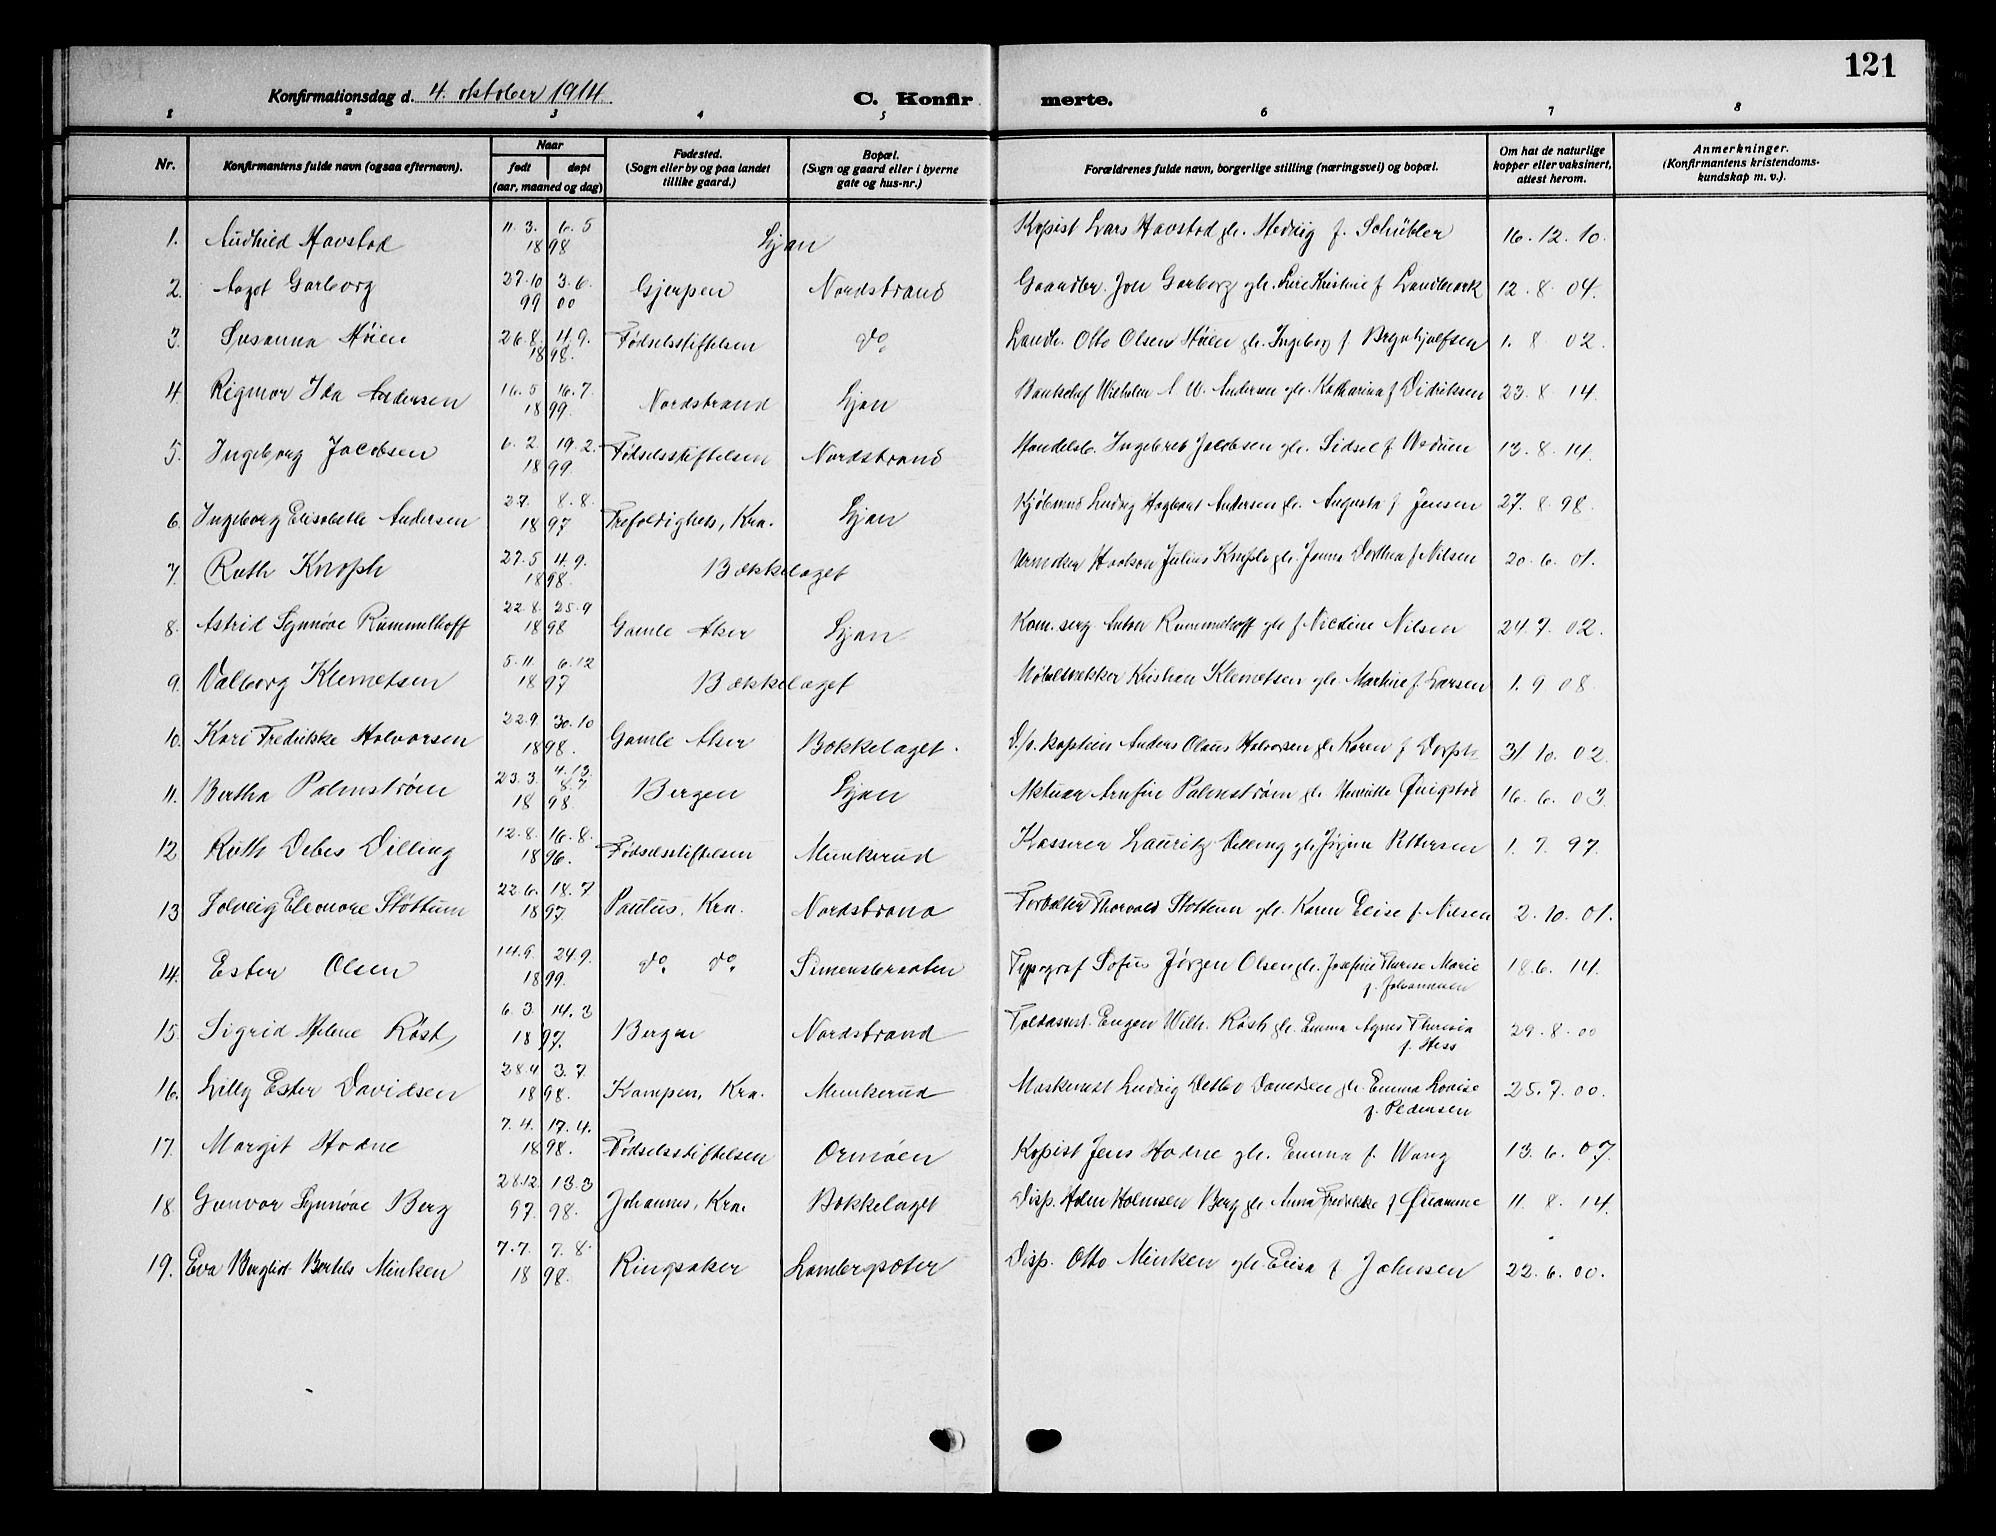 121
Konfirmationsdag d. 4. oktober 1914
C. Konfirmerte.
1 2 3 4 5 6 7 8
Nr. Konfirmantens fulde navn (ogsaa efternavn). Naar født døpt (aar, maaned og dag) Fødested. (Sogn eller by og paa landet tillike gaard.) Bopæl. (Sogn og gaard eller i byerne gate og hus-nr.) Forældrenes fulde navn, borgerlige stilling (næringsvei) og bopæl. Om hat de naturlige kopper eller vaksinert, attest herom. Anmerkninger. (Konfirmantens kristendoms-kundskap m. v.).
1. Audhild Havstad 11.3. 6.5 1898 Ljan Kopist Lars Havstad gh. Hedvig f. Schübler 16.12.10.
2. Aagot Garborg 27.10 99 3.6. 00 Gjerpen Nordstrand Gaardbr. Jon Garborg gh. Kristine f. Landmark 12.8.04.
3. Susanna Høien 26.8. 11.9. 1898. Fødselsstiftelsen do. Landh. Otto Olsen Høien gh. Ingeborg f. Brynhjolfsen 1.8 02.
4. Rigmor Ida Andersen 16.5 16.7. 1899. Nordstrand Ljan Bankchef Wilhelm A. W. Andersen gh. Katharina f. Didriksen 23.8 14.
5. Ingeborg Jacobsen 6.2. 19.2. 1899 Fødselsstiftelsen Nordstrand Handelsb. Ingebret Jacobsen gh. Sidsel f. 13.8.14.
6. Ingeborg Elisabeth Andersen 27. 8.8. 1897 Trefoldighets, Kra. Ljan Kjøbmand Ludvig Hagbart Andersen gh. Augusta f. Jensen 27.8.98.
7. Ruth Knoph 27.5 11.9. 1898. Bækkelaget Urmaker Haakon Julius Knoph gh. Janna Dorthea f. Nilsen 20.6.01.
8. Astrid Synnøve Rummelhoff 22.8. 25.9 1898 Gamle Aker Ljan Kom. serg. Anton Rummelhoff gh. f. Nicoline Nilsen 24.7.02.
9. Valborg Klemetsen 5.11. 6.12 1897 Bækkelaget Møbelsnekker Kristian Klemetsen gh. Martine f. Larsen 1.9 08.
10. Kari Fredrikke Halvorsen 22.9. 30.10 1898. Gamle Aker Bækkelaget. D/s. kaptein Anders Olaus Halvorsen gh. Karen f. 31.10.02.
11. Bertha Palmstrøm 23.3. 8.7 1898. Bergen Ljan Aktuar Arnfin Palmstrøm gh. Henriette Qvigstad 16.6.03.
12 Ruth Debes Dilling 12.8. 16.8. 1896. Fødselsstiftelsen Munkerud Kasserer Lauritz Dilling gh. Jørgine Pettersen 1.7.97.
13 Solveig Eleonore Støttum 22.6. 18.7 1897. Paulus, Kra. Nordstrand Forvalter Thorvald Støttum gh. Karen Elise f. Nilsen 2.10.01.
14. Ester Olsen 14.6. 24.9. 1899. do. do. Simensbraaten Typograf Sofus Jørgen Olsen gh. Josefine Therese Marie f. Johannesen 18.6.14.
15. Sigrid Helene Kåst 6.3. 14.3 1897. Bergen Nordstrand Toldassist. Eugen Wilh. gh. Emma Agnes Theresia f. Hess 29.8.00
16. Lilly Ester Davidsen 28.4 3.7. 1898. Kampen, Kra. Munkerud Maskinist Ludvig Detlev Davidsen gh. Emma Lovise f. Pedersen 25.7.00.
17. Margit Hodne 7.4. 17.4. 1898. Fødselsstiftelsen Ormøen Kopist Jens Hodne gh. Emma f. Wang 13.6.07.
18 Gunvor Synnøve Berg 28.12. 97. 13.3 98. Johannes, Kra. Bækkelaget Disp. Holm Holmsen Berg gh. Anna Fredrikke f. Qvamme 11.8.14.
19. Eva Bergliot Bertels Minken 7.7. 7.8. 1898. Ringsaker Lambergsæter Disp. Otto Minken gh. Elisa f. Johnsen 22.6.00.